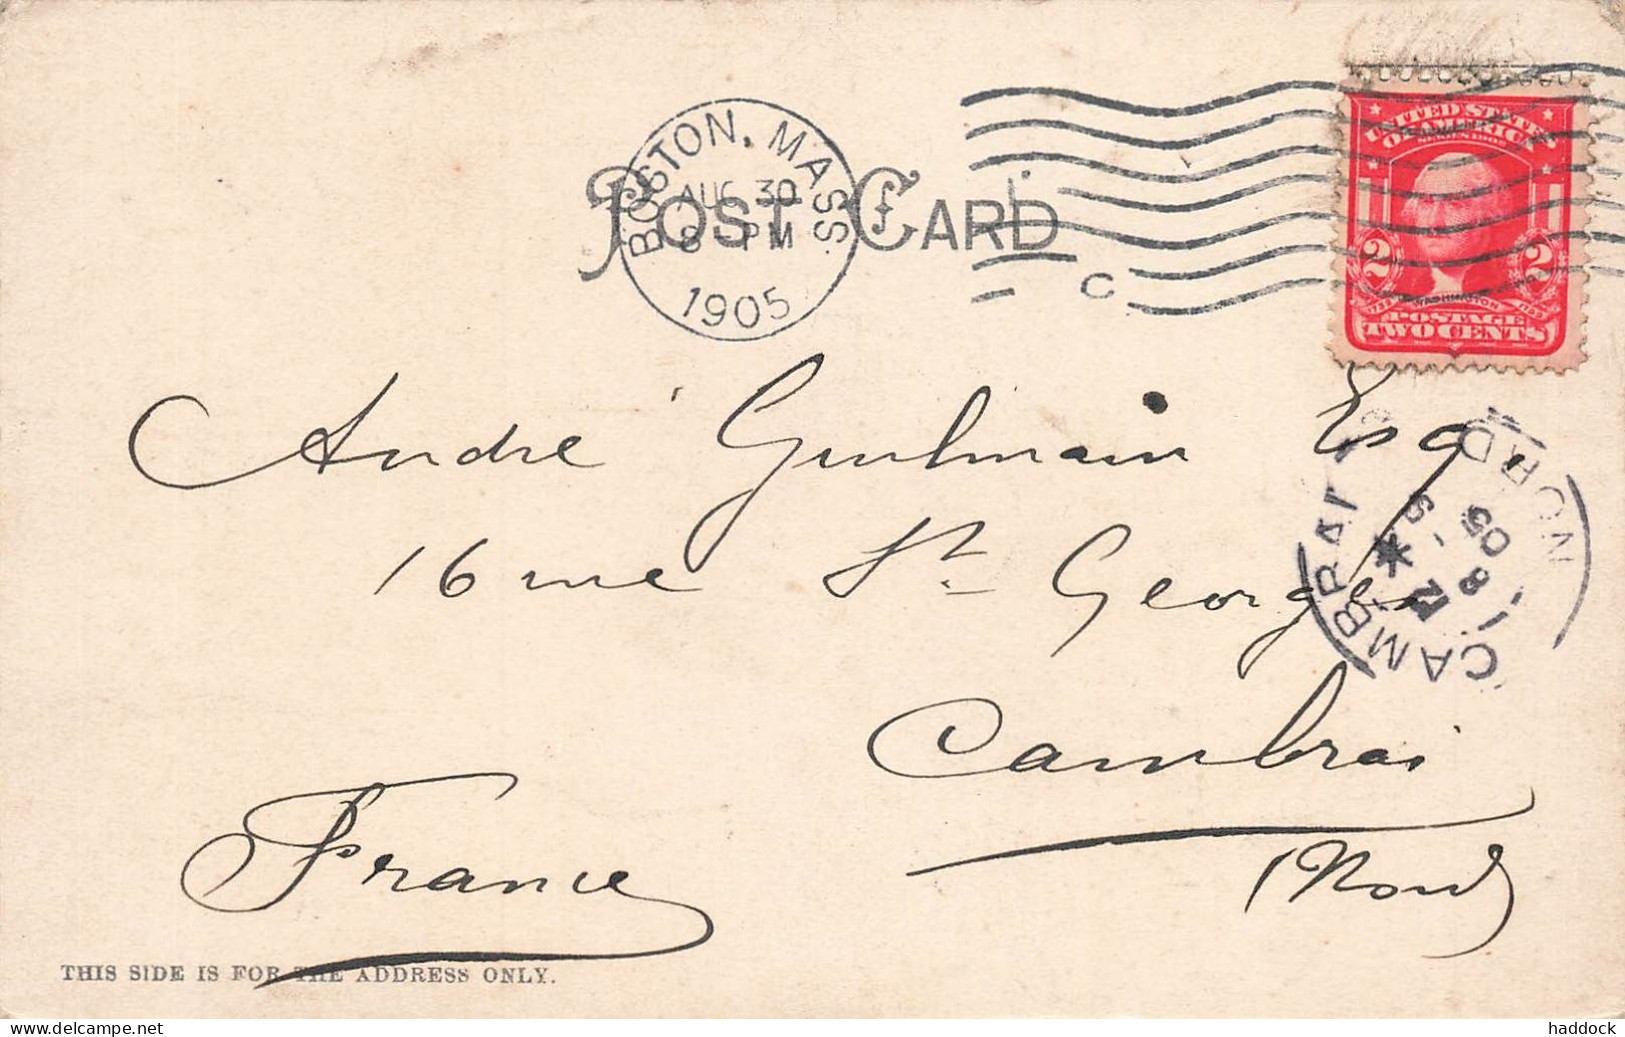 BOSTON, MASS.
AUG 30
8 - PM
1905
POST CARD
C
UNITED STATES
OF AMERICA
SERIES 1902
2 2
WASHINGTON
POSTAGE
TWO CENTS
André Guilmain Esq.
16 rue St. Georges
Cambrai
(Nord)
France
CAMBRAI
NORD
8 - 9
05
THIS SIDE IS FOR THE ADDRESS ONLY.
www.delcampe.net
haddock